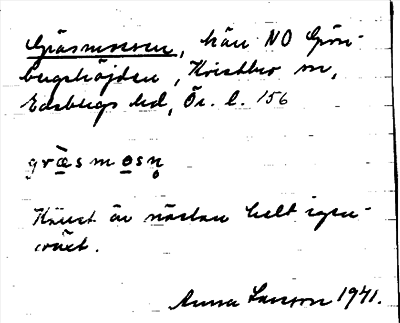 Gräsmossen, kärr NO Grön-
bergshöjden, Kvistbro sn,
Edsbergs hd, Ör. l. 156
gräsmosn̥
Kärret är nästan helt igen-
växt.
Anna Larsson 1941.